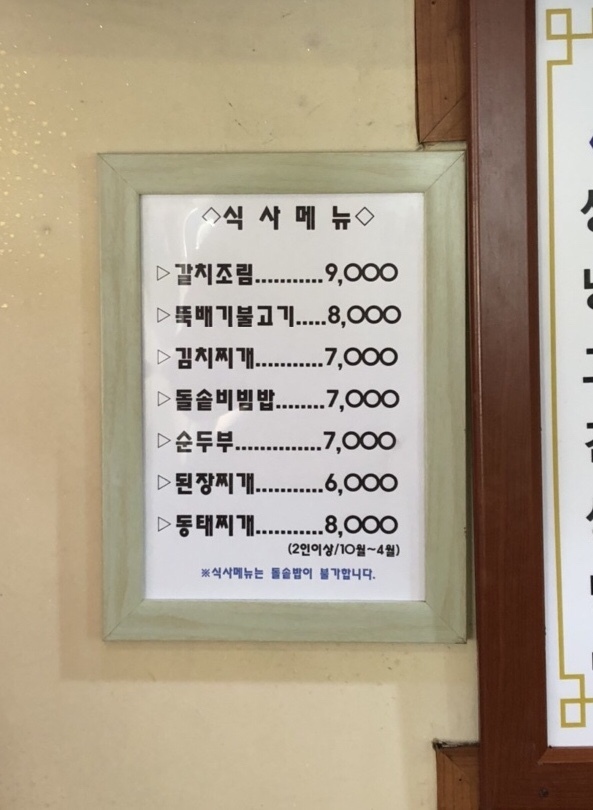 ◇식 사 메 뉴◇
▷갈치조림...........9,000
▷뚝배기불고기.....8,000
▷김치찌개...........7,000
▷돌솥비빔밥........7,000
▷순두부..............7,000
▷된장찌개...........6,000
▷동태찌개...........8,000
(2인이상/10월~4월)
※식사메뉴는 돌솥밥이 불가합니다.